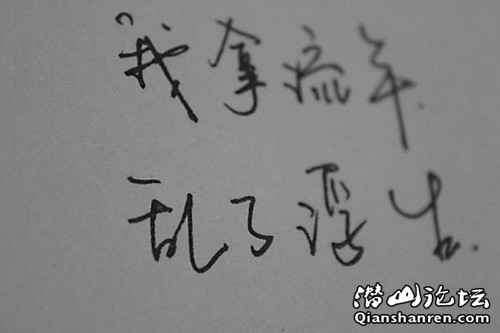 我拿流年.
乱了浮生.
潜山论坛
Qianshanren.com